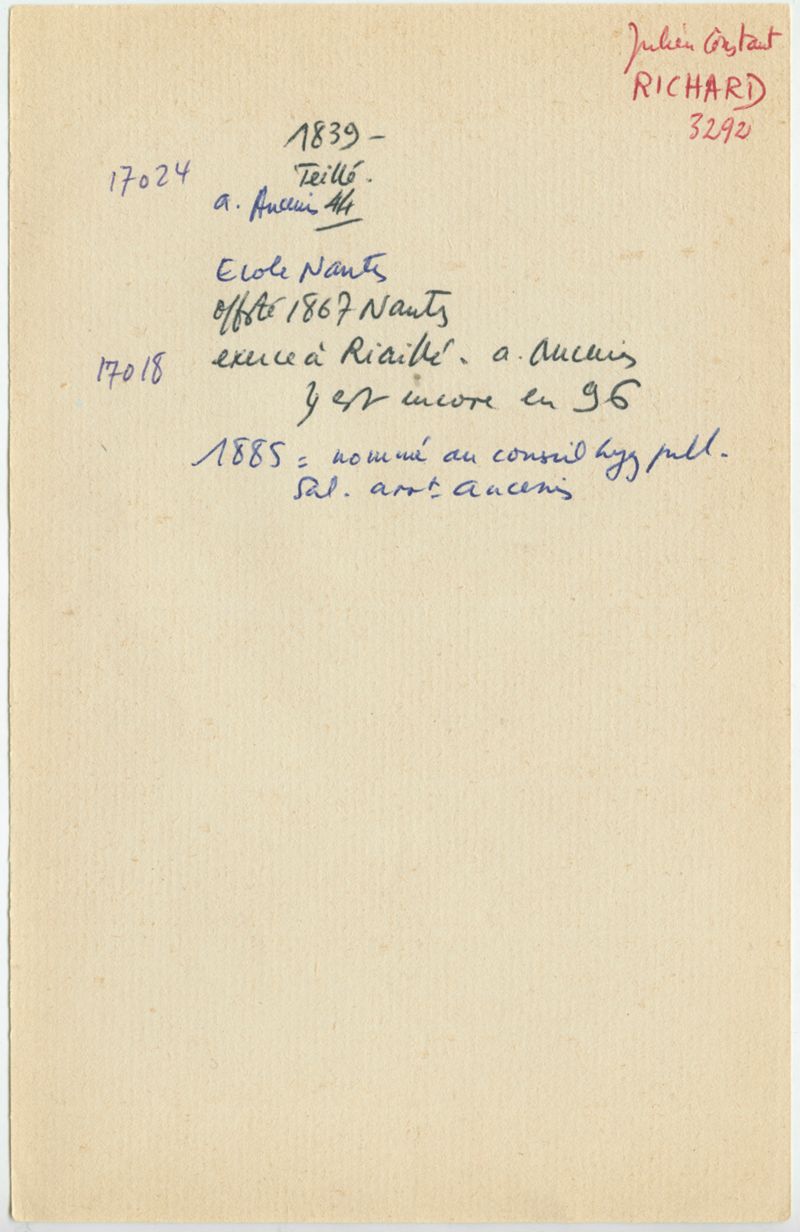 Julien Constant
RICHARD
3292
1839 -
17024
Teillé.
a. Ancenis 44
Ecole Nantes
offste 1867 Nantes
17018
exerce à Riaillé. a. Ancenis
y est encore en 96
1885 = nommé au conseil hyg publ.
Sal. arrt Ancenis